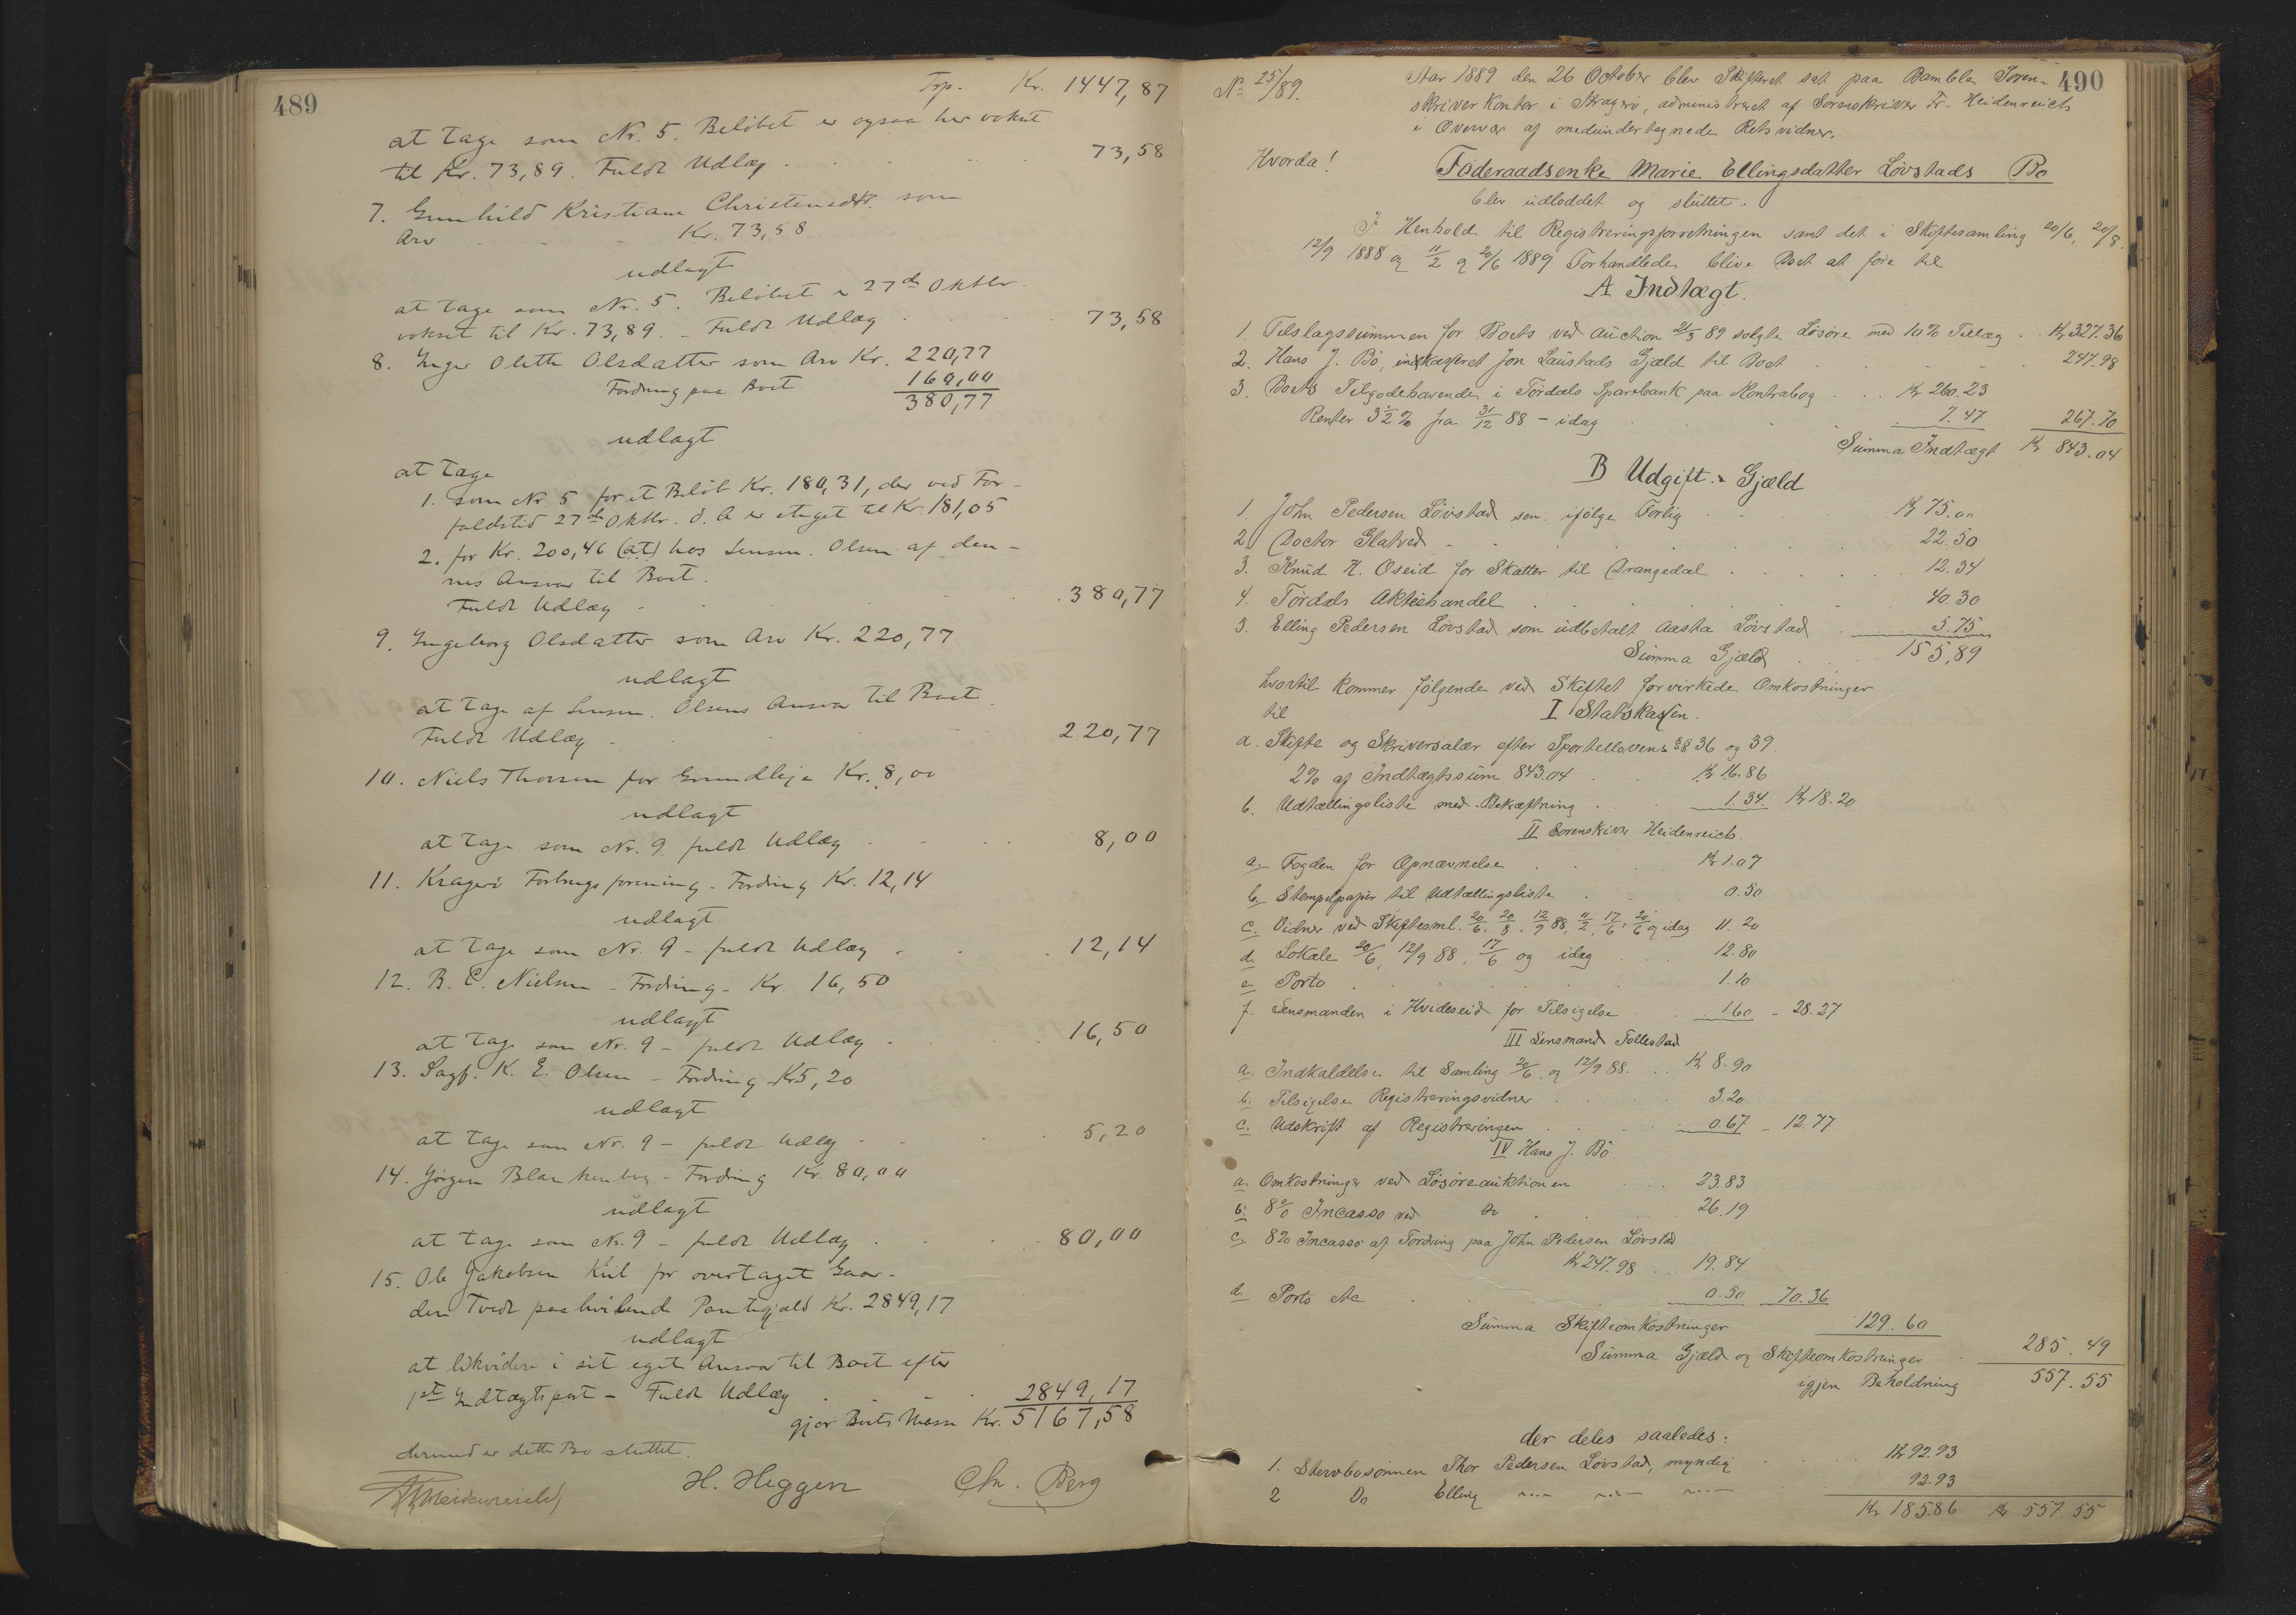 489
Trp. Kr. 1447,87
at tage som Nr. 5. Beløbet er ogsaa her vokset
til Kr. 73,89. Fuldt Udlæg 73,58
7. Gunhild Kristiane Christensdtr. som
Arv Kr. 73,58
udlagt
at tage som Nr. 5. Beløbet er 27de Oktbr.
vokset til Kr. 73,89. - Fuldt Udlæg 73,58
8. Inger Olette Olsdatter som Arv Kr. 220,77
Fordring paa Boet 160,00
380,77
udlagt
at tage
1. som Nr 5 for et Beløb Kr. 180,31, der ved For-
faldstid 27de Oktbr. d. A. er steget til Kr. 181,05
2. for Kr. 200,46 (at) hos Lensm. Olsen af den-
nes Ansvar til Boet.
Fuldt Udlæg 380,77
9. Ingeborg Olsdatter som Arv Kr. 220,77
udlagt
at tage af Lensm. Olsens Ansvar til Boet.
Fuldt Udlæg 220,77
10. Niels Thorsen for Grundleje Kr. 8,00
udlagt
at tage som Nr. 9 fuldt Udlæg 8,00
11. Kragerø Forbrugsforening - Fordring Kr. 12,14
udlagt
at tage som Nr. 9 - fuldt Udlæg 12,14
12. B. C. Nielsen - Fordring - Kr. 16,50
udlagt
at tage som Nr. 9 - fuldt Udlæg 16,50
13. Sagf. K. E. Olsen - Fordring Kr 5,20
udlagt
at tage som Nr. 9 - fuldt Udlæg 5,20
14. Jørgen Blankenborg - Fordring Kr. 80,00
udlagt
at tage som Nr. 9 - fuldt Udlæg 80,00
15. Ole Jakobsen Kiil for overtaget Gaar-
den Tvedt paahvilende Pantegjæld Kr. 2849,17
udlagt
at likvidere i sit eget Ansvar til Boet efter
1ste Indtægtspost - Fuldt Udlæg 2849,17
gjør Boets Masse Kr. 5167,58
Hermed er dette Bo sluttet.
Fr Heidenreich H. Heggen Chr. Berg
490
No 25/89. Aar 1889 den 26 October blev Skifteret sat paa Bamble Soren-
skriver Kontor i Kragerø, administreret af Sorenskriver Fr. Heidenreich
i Overvær af medundertegnede Retsvidner.
Hvorda! Føderaadsenke Marie Ellingsdatter Løvstads Bo
blev udloddet og sluttet.
I Henhold til Registreringsforretningen samt det i Skiftesamling 20/6, 20/8,
12/9 1888 og 11/2 og 20/6 1889 Forhandlede blive Boet at føre til
A Indtægt.
1. Tilslagssummen for Boets ved Auction 21/3 89 solgte Løsøre med 10% Tillæg Kr 327.36
2. Hans J. Bö, indkasseret Jon Laustads Gjæld til Boet 247.98
3. Boets Tilgodehavende i Tørdals Sparebank paa Kontrabog Kr 260.23
Renter 3 1/2 % fra 31/12 88 - idag 7.47 267.70
Summa Indtægt Kr 843.04
B Udgift. Gjæld
1. John Pedersen Lövstad sen. ifølge Forlig Kr 75.00
2. Doctor Glatved 22.50
3. Knud H. Oseid for Skatter til Drangedal 12.34
4. Tørdals Aktiehandel 40.30
5. Elling Pedersen Lövstad som udbetalt Aasta Lövstad 5.75
Summa Gjæld 155,89
hvortil kommer følgende ved Skiftet forvirkede Omkostninger
til I Statskassen.
a. Skifte og Skriversalær efter Sportellovens §§ 36 og 39.
2% af Indtægtssum 843.04 Kr 16.86
b. Udtællingsliste med Bekræftning 1.34. Kr 18.20
II Sorenskriver Heidenreich
a. Fogden for Opnævnelse Kr 1.07
b. Stempelpapir til Udtællingsliste 0.50
c. Vidner ved Skiftesml. 20/6, 20/8, 12/9 88, 11/2, 17/6, 20/6 og idag 11.20
d. Lokale 20/6, 12/9 88, 17/6 og idag 12.80
e. Porto 1.10
f. Lensmanden i Hvideseid for Tilsigelse 1.60 - 28.27
III Lensmand Tollestad
a. Indkaldelse til Samling 20/6 og 12/9 88. Kr 8.90
b. Tilsigelse Registreringsvidner 3.20
c. Udskrift af Registreringen 0.67 - 12.77
IV Hans J. Bö.
a. Omkostninger ved Løsøreauktionen 23.83
b. 8% Incasso ved do 26.19
c. 8% Incasso af Fordring paa John Pedersen Lövstad
Kr 247.98 19.84
d. Porto etc 0.50 70.36
Summa Skifteomkostninger 129.60
Summa Gjæld og Skifteomkostninger 285.49
igjen Beholdning 557.55
der deles saaledes:
1. Stervbosønnen Thor Pedersen Lövstad, myndig Kr 92.93
2 Do Elling 92.93
Kr 185.86 Kr 557.55